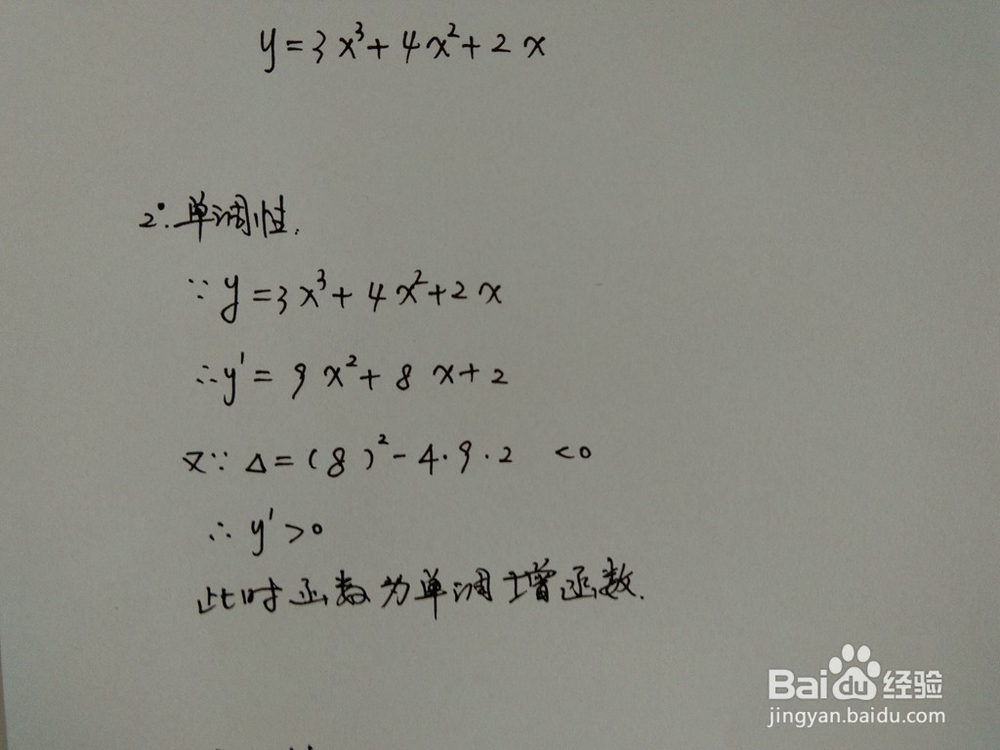 y=3x³+4x²+2x
2°.单调性.
∵y=3x³+4x²+2x
∴y'=9x²+8x+2
又∵Δ=(8)²-4·9·2 <0
∴y'>0
此时函数为单调增函数.
Baidu经验
jingyan.baidu.com